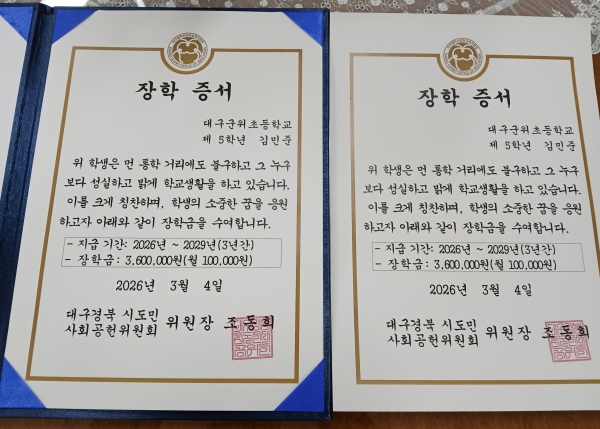 장학 증서
대구군위초등학교
제 5학년 김민준
위 학생은 먼 통학 거리에도 불구하고 그 누구
보다 성실하고 밝게 학교생활을 하고 있습니다.
이를 크게 칭찬하며, 학생의 소중한 꿈을 응원
하고자 아래와 같이 장학금을 수여합니다.
- 지급 기간: 2026년 ~ 2029년(3년간)
- 장학금: 3,600,000원(월 100,000원)
2026년 3월 4일
대구경북 시도민
사회공헌위원회 위원장 조동희
장학 증서
대구군위초등학교
제 5학년 김민준
위 학생은 먼 통학 거리에도 불구하고 그 누구
보다 성실하고 밝게 학교생활을 하고 있습니다.
이를 크게 칭찬하며, 학생의 소중한 꿈을 응원
하고자 아래와 같이 장학금을 수여합니다.
- 지급 기간: 2026년 ~ 2029년(3년간)
- 장학금: 3,600,000원(월 100,000원)
2026년 3월 4일
대구경북 시도민
사회공헌위원회 위원장 조동희